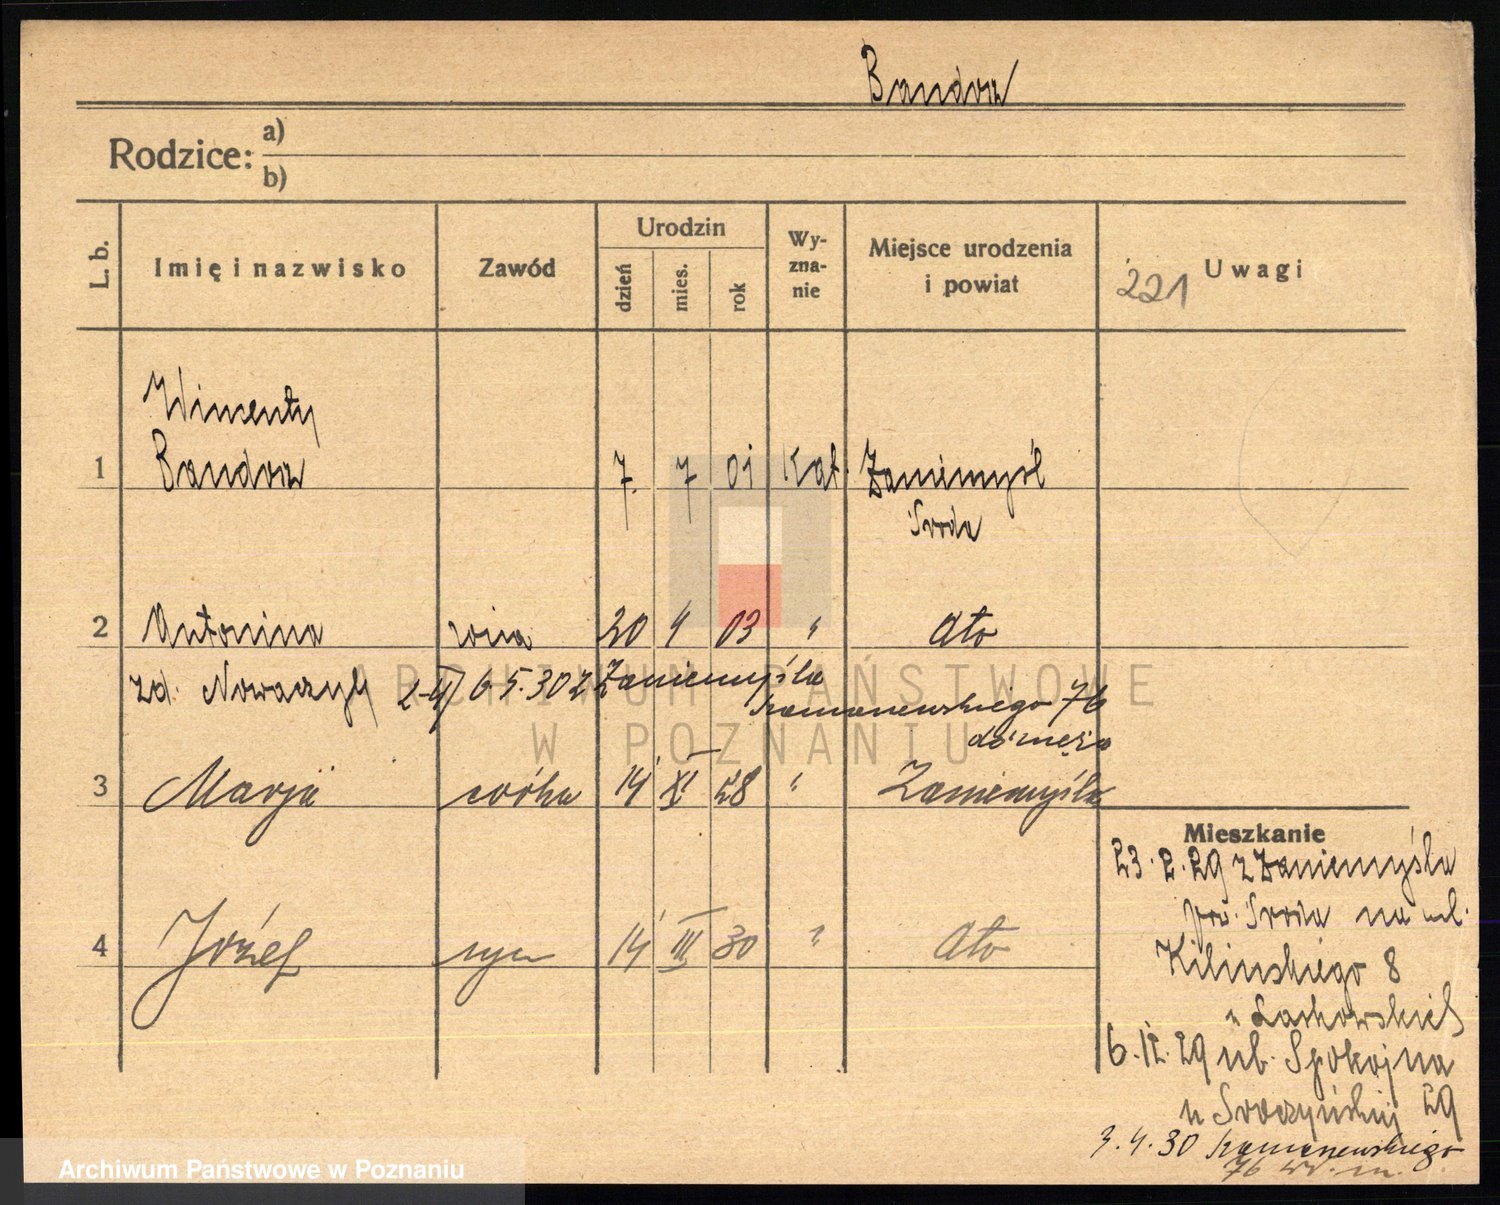 Bandosz
Rodzice: a)
b)
L. b.
Imię i nazwisko
Zawód
Urodzin
dzień
mies.
rok
Wy-
zna-
nie
Miejsce urodzenia
i powiat
221 Uwagi
Wincenty
1 Bandosz 7. 7 01 Kat. Zaniemyśl
Środa
2 Antonina żona 20 4 03 " Ato
zd. Nowaczyk 2-4/ 6.5.30 z Zaniemyśla
Kamanewskiego 76
do męża
3 Marja córka 14 XI 28 " Zaniemyśla
Mieszkanie
23. 2. 29 z Zaniemyśla
pow. Środa na ul.
4 Józef syn 14 III 30 " Ato
Kilinskiego 8
u Laskowskich
6. 12. 29 ul. Spokojna
u 29
3. 4. 30 Kamanewskiego
76
ARCHIWUM PAŃSTWOWE
W POZNANIU
Archiwum Państwowe w Poznaniu